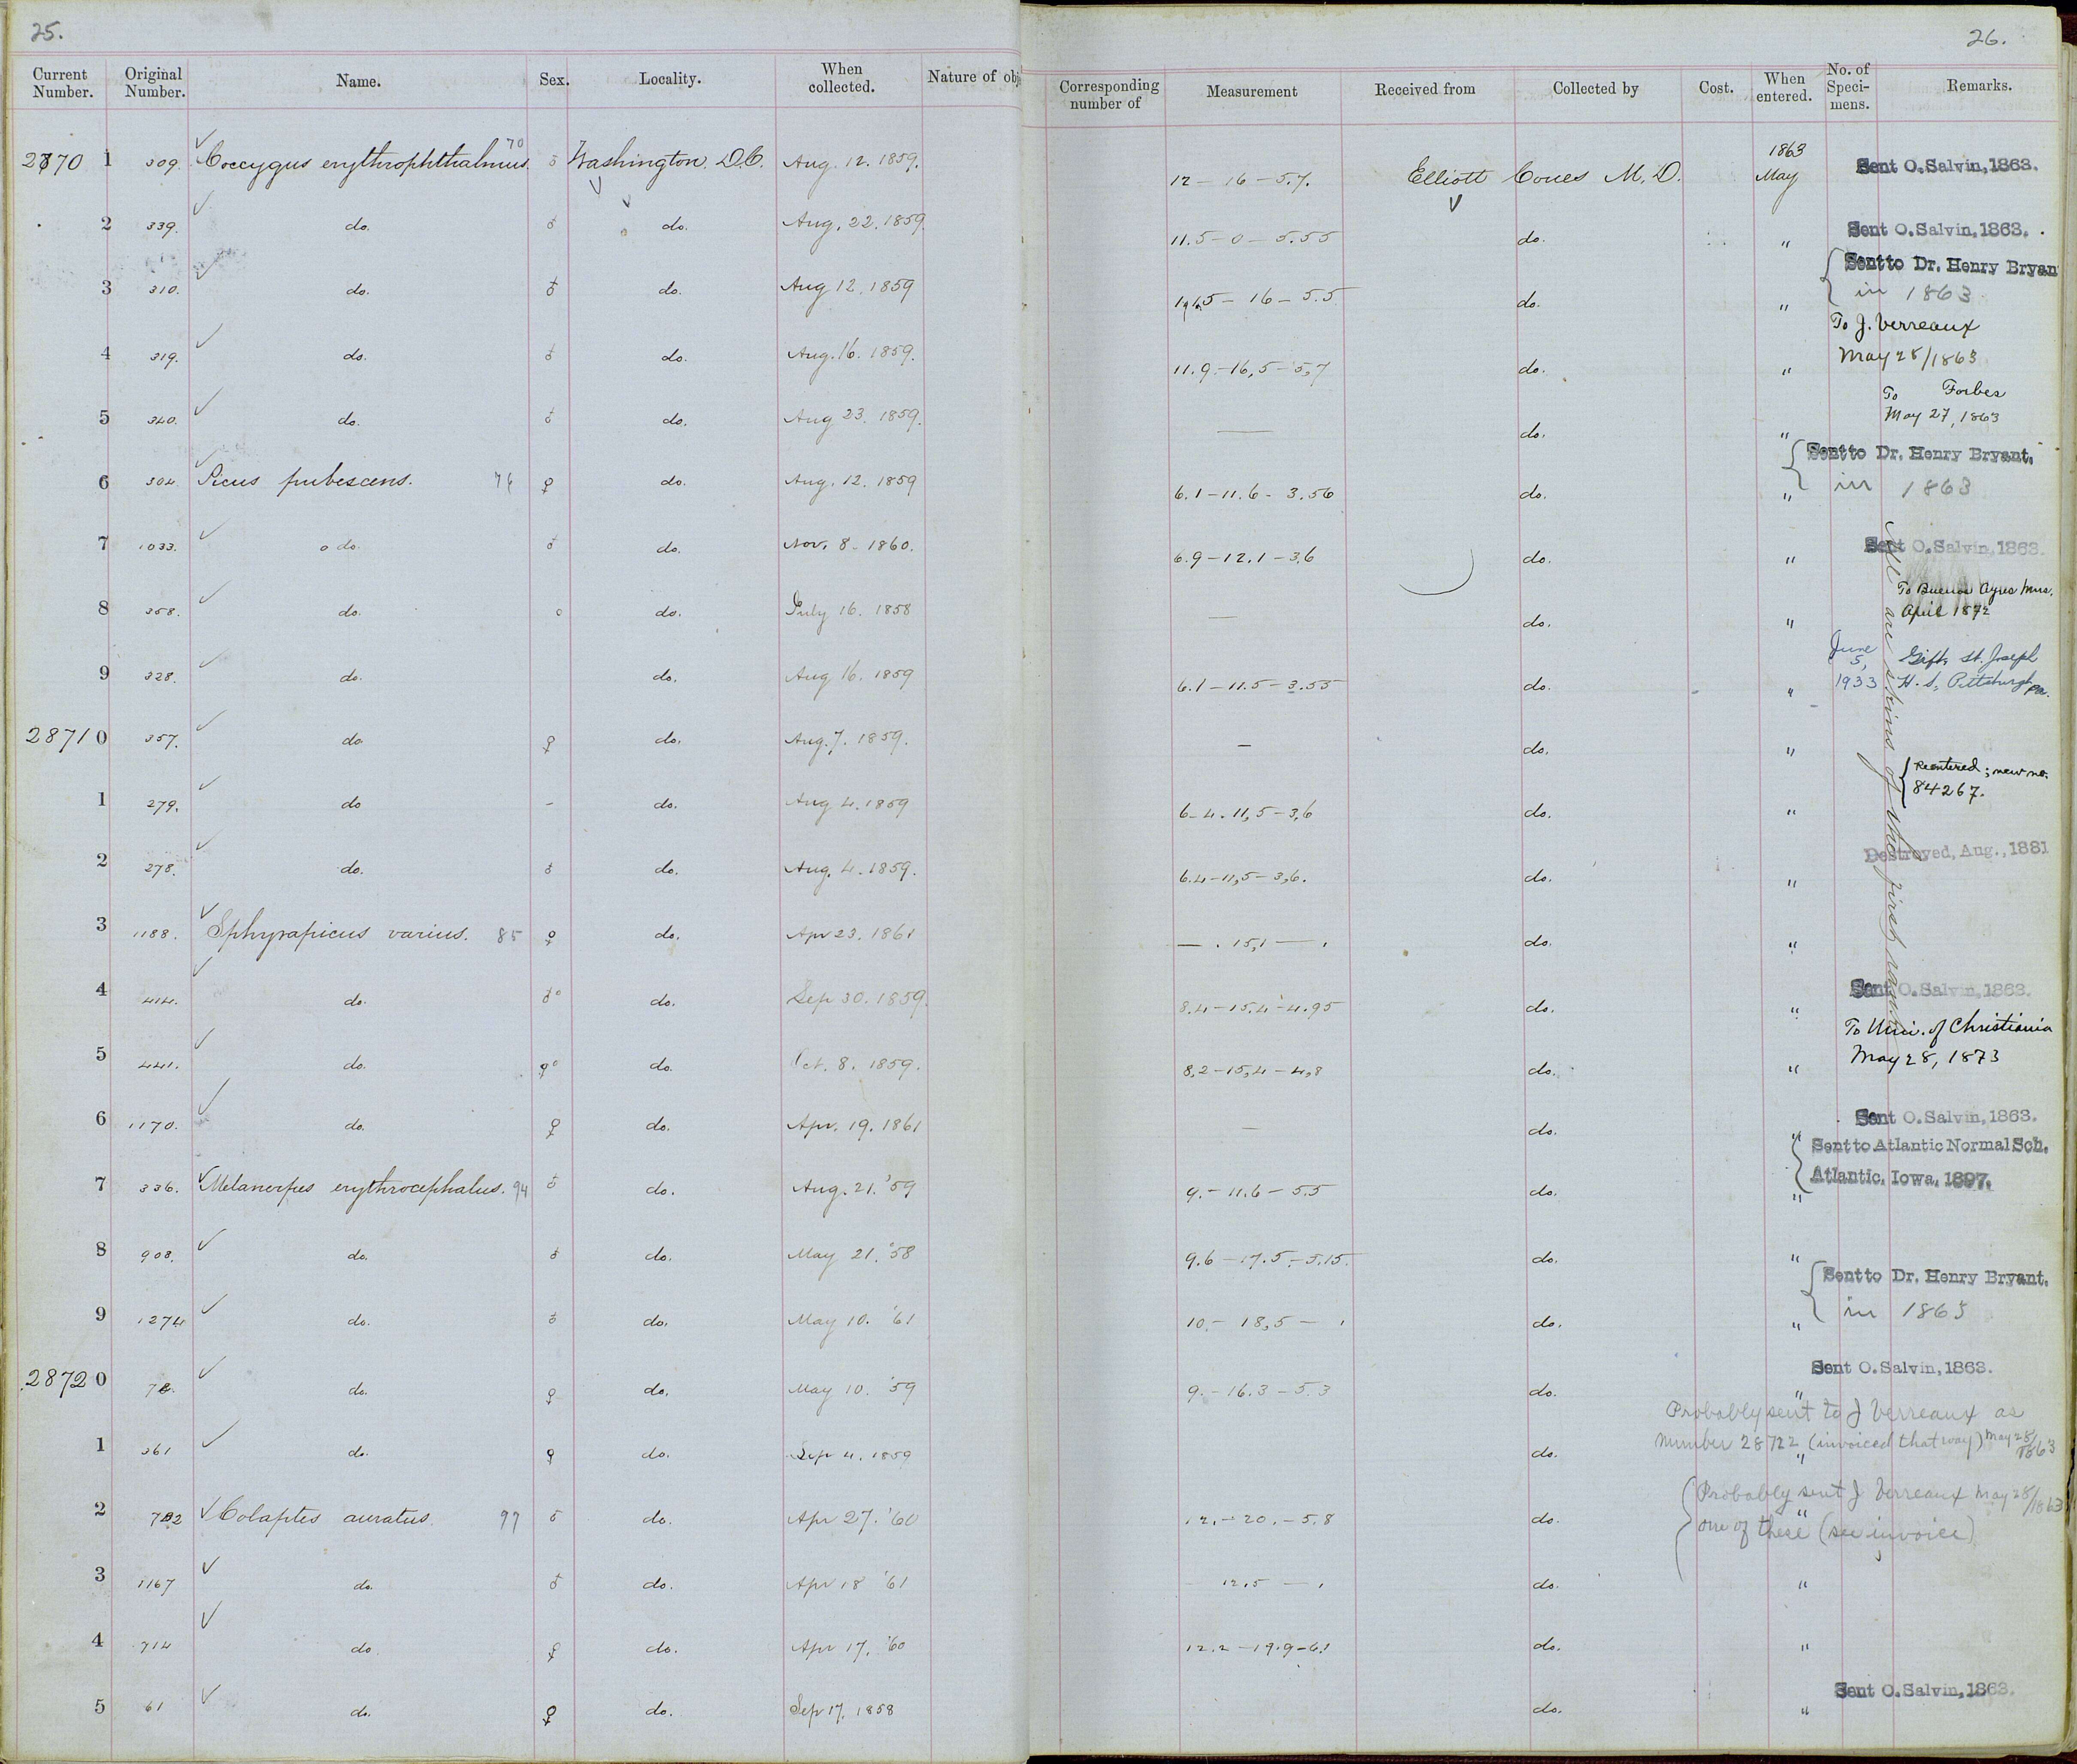 25.
26.
Current Number. Original Number. Name. Sex. Locality. When collected. Nature of obj
Corresponding number of Measurement Received from Collected by Cost. When entered. No. of Specimens. Remarks.
2870 1 309. Coccygus erythrophthalmus. 70 ♂ Washington. D.C. Aug. 12. 1859. 12 — 16 — 5.7. Elliott Coues M.D. 1863 May Sent O. Salvin, 1863.
2 339. do. ♂ do. Aug. 22. 1859. 11.5 — 0 — 5.55 do. " Sent O. Salvin, 1863.
3 310. do. ♂ do. Aug 12. 1859 16 — 5.5 do. " Sent to Dr. Henry Bryan
in 1863
4 319. do. ♂ do. Aug. 16. 1859. 11.9. — 16,5 — 5,7 do. " To J. Verreaux
May 28/1863
5 340. do. ♂ do. Aug 23. 1859. — do. " To Forbes
May 27, 1863
6 304. Picus pubescens. 76 ♀ do. Aug. 12. 1859 6.1 — 11.6 - 3.56 do. " Sent to Dr. Henry Bryant.
in 1863
7 1033. do. ♂ do. Nov. 8. 1860. 6.9 — 12.1 — 3.6 do. " Sent O. Salvin, 1863.
8 358. do. do. July 16. 1858 — do. " To Buenos Ayres Mus.
April 1872
9 328. do. do. Aug 16. 1859 6.1 — 11.5 — 3.55 do. " June 5, 1933 Gift, St. Joseph
H. S., Pittsburgh, Pa.
28710 357. do. ♀ do. Aug. 7. 1859. — do. "
1 279. do - do. Aug 4. 1859 6-4. 11,5 — 3,6 do. " Reentered; new no.
84267.
2 278. do. ♂ do. Aug. 4. 1859. 6.4 — 11,5 — 3,6. do. " Destroyed, Aug., 1881
3 1188. Sphyrapicus varius. 85 ♀ do. Apr 23. 1861 — . 15,1 — . do. "
4 414. do. ♂ do. Sep 30. 1859. 8.4 — 15.4 — 4.95 do. " Sent O. Salvin, 1863.
5 441. do. ♀ do. Oct. 8. 1859. 8,2 — 15,4 — 4,8 do. " To Uni. of Christiania
May 28, 1873
6 1170. do. ♀ do. Apr. 19. 1861 — do. " Sent O. Salvin, 1863.
7 336. Melanerpes erythrocephalus. 94 ♂ do. Aug. 21. '59 9. — 11.6 — 5.5 do. " Sent to Atlantic Normal Sch.
Atlantic, Iowa, 1897.
8 908. do. ♂ do. May 21. '58 9.6 — 17.5 — 5.15. do. "
9 1274 do. ♂ do. May 10. '61 10. — 18,5 — do. " Sent to Dr. Henry Bryant.
in 1863
28720 do. ♀ do. May 10. '59 9. — 16.3 — 5.3 do. " Sent O. Salvin, 1863.
1 361 do. ♀ do. Sep 4. 1859 do. " Probably sent to J Verreaux as
number 28722 (invoiced that way) May 28/1863
2 702 Colaptes auratus. 97 ♂ do. Apr 27. '60 12. — 20. — 5.8 do. " Probably sent J Verreaux May 28/1863
one of these (see invoice)
3 1167 do. ♂ do. Apr 18 '61 12.5 — . do. "
4 714 do. ♀ do. Apr 17. '60 12.2 — 19.9 — 6.1 do. "
5 61 do. ♀ do. Sep 17. 1858 do. " Sent O. Salvin, 1863.
All are skins of the first